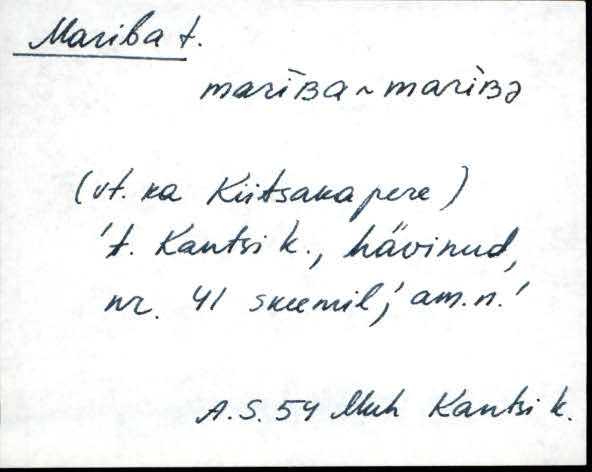 Mariba t.
marìʙa ~ marìʙə
(vt. ka Kiitsaka pere)
't. Kantsi k., hävinud,
nr. 41 skeemil; am.n.'
A.S. 54 Muh Kantsi k.